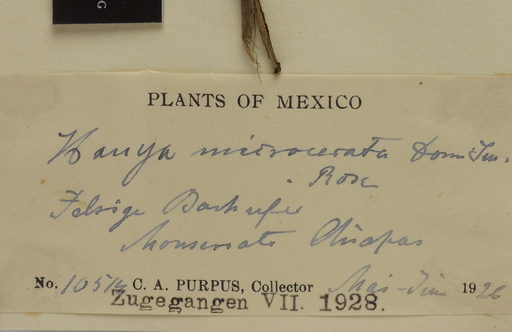 G
PLANTS OF MEXICO
Hauya microcerata Donn. Sm.
Rose
Felsige Bachufer
Monserrate Chiapas
No. 10514 C. A. PURPUS, Collector Mai-Jun 1926
Zugegangen VII. 1928.